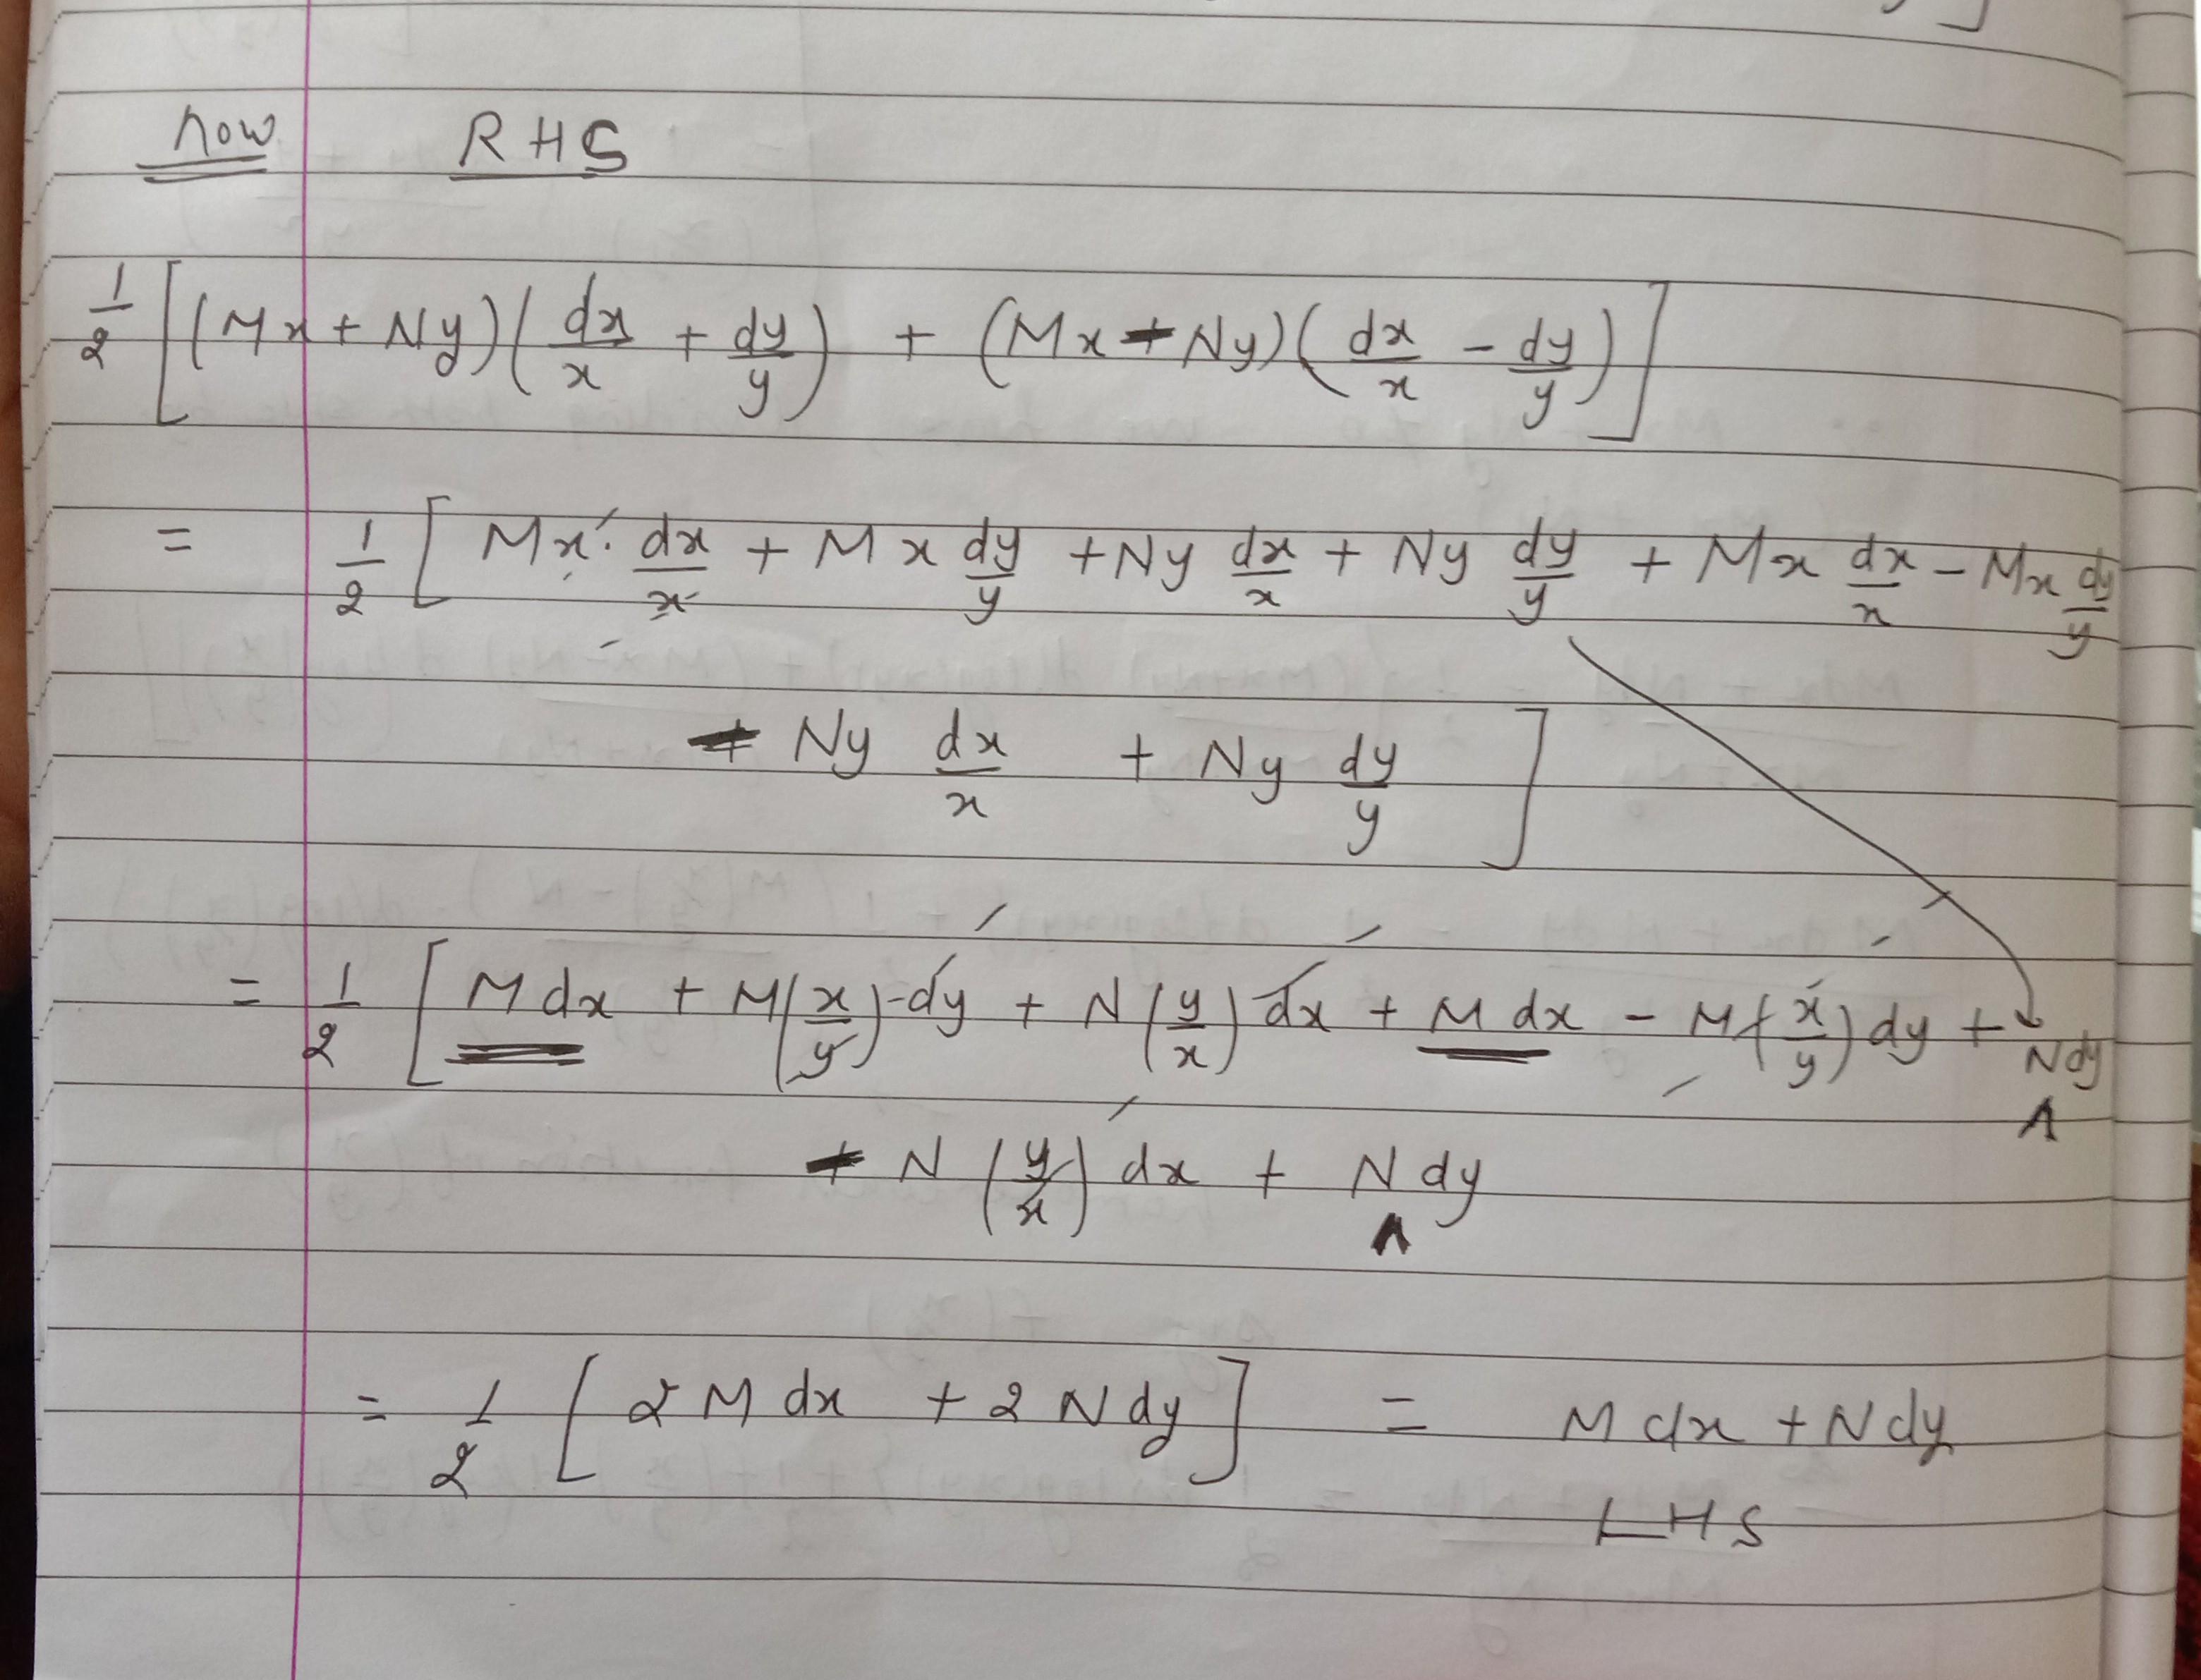 now RHS
1/2 [(Mx + Ny)(dx/x + dy/y) + (Mx - Ny)(dx/x - dy/y)]
= 1/2 [Mx · dx/x + Mx dy/y + Ny dx/x + Ny dy/y + Mx dx/x - Mx dy/y
- Ny dx/x + Ny dy/y]
= 1/2 [M dx + M(x/y) dy + N(y/x) dx + M dx - M(x/y) dy + N dy
- N(y/x) dx + N dy
= 1/2 [2 M dx + 2 N dy] = M dx + N dy
LHS